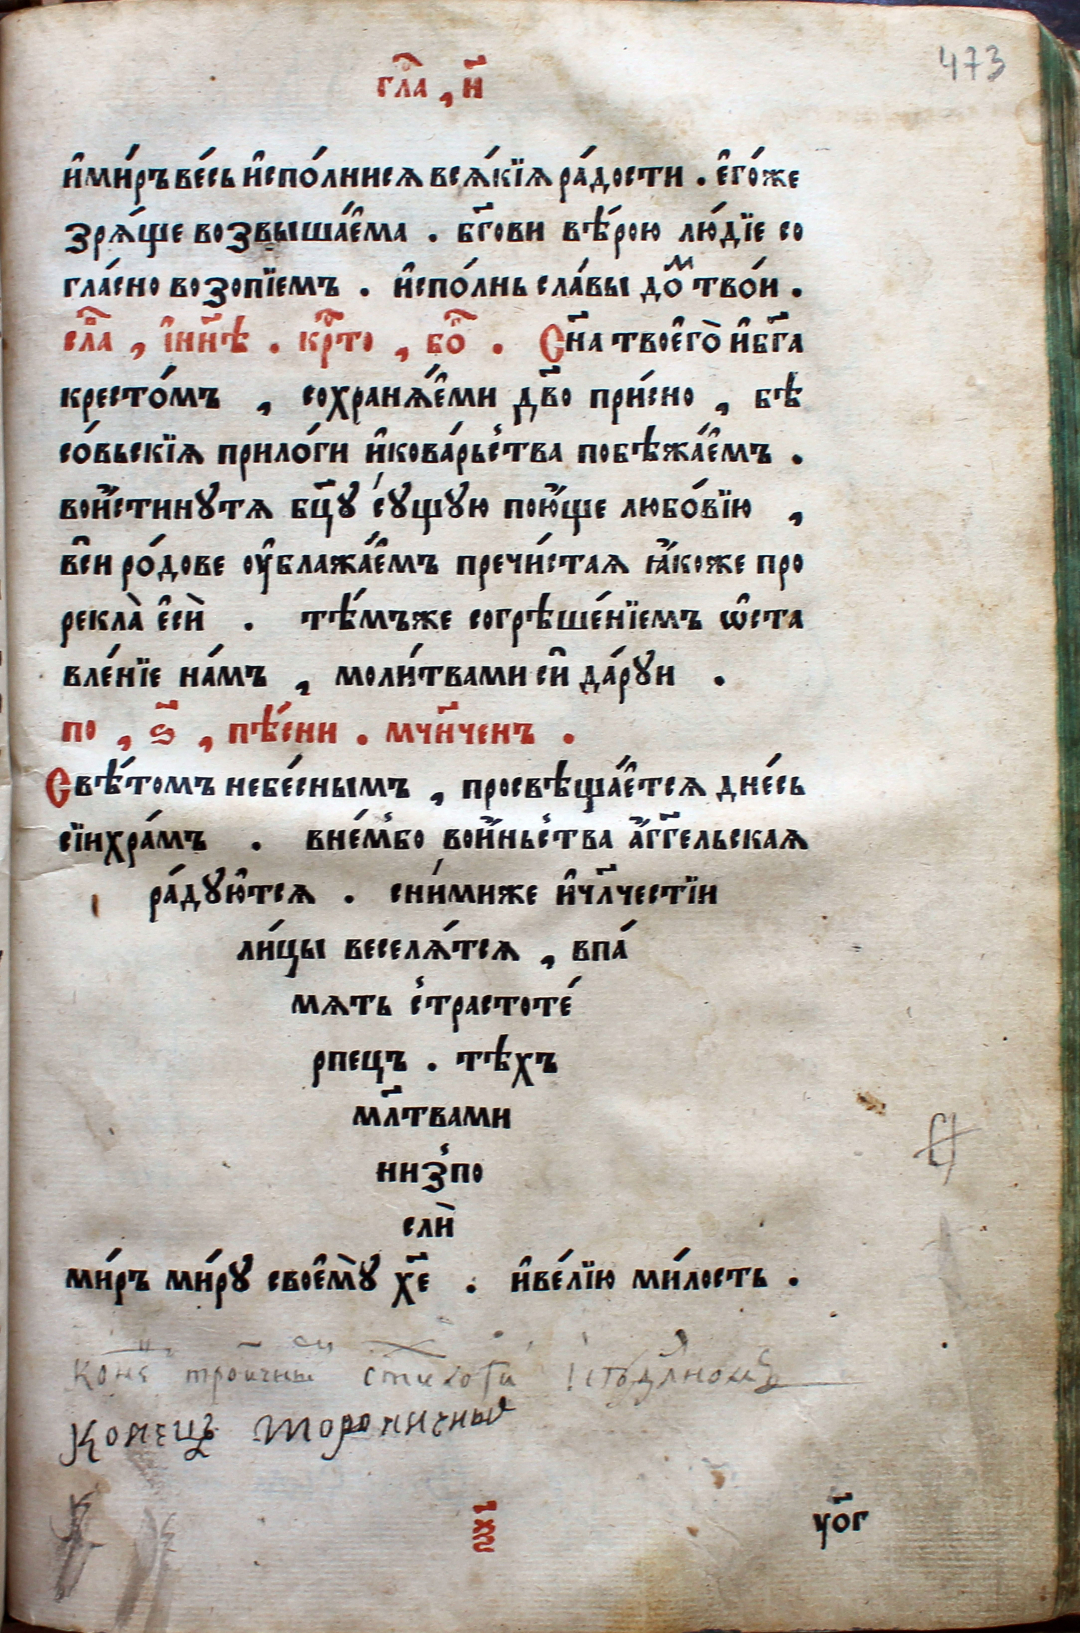 473
гл҃а , и҃
и҆ми́ръ ве́сь и҆спо́лнисѧ всѧ́кїѧ ра́дости . є҆го́же
зрѧ́ще возвыша́є҆ма . бг҃ови вѣ́рою лю́дїе со
гла́сно возопїемъ . и҆спо́лнь сла́вы до́ⷨ тво́и .
сла҃ , и҆нн҃ѣ . крⷭ҇то , бо҃ . Сн҃а твоє҆го̀ и҆бг҃а
кресто́мъ , сохранѧ́є҆ми дв҃о при́сно , бѣ
со́вьскїѧ прило́ги и҆кова́рьства побѣжа́є҆мъ .
вои҆́стинꙋтѧ бц҃ꙋ сꙋщꙋю пою҆́ще любо́вїю ,
вси҆ ро́дове ᲂу҆блажа́є҆мъ пречи́стаѧ ꙗ҆́коже про
рекла̀ є҆сѝ . тѣ́мъже согрѣше́нїемъ ѡ҆ста
вле́нїе на́мъ , моли́твами си҆ да́рꙋи .
по , ѕ҃ , пѣ́сни . мч҃нченъ .
Свѣ́томъ небе́снымъ , просвѣща́є҆тсѧ дне́сь
сїихра́мъ . вне́мбо вои҆́ньства а҆́гг҃ельскаѧ
ра́дꙋю҆тсѧ . сни́миже и҆чл҃честїи
ли́цы веселѧ́тсѧ , впа́
мѧть страстоте́
рпецъ . тѣ́хъ
мл҃твами
низпо
слѝ
ми́ръ ми́рꙋ своє҆мꙋ̀ хе҃ . и҆ве́лїю ми́лость .
Конецъ тороичны
уо҃г